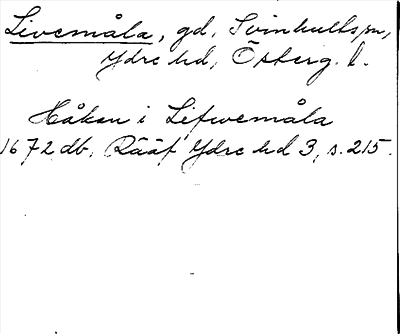 Livemåla, gd, Svinhults sn,
Ydre hd, Österg. l.
Håkan i Lifwemåla
1672 db, Rääf Ydre hd 3, s. 215.